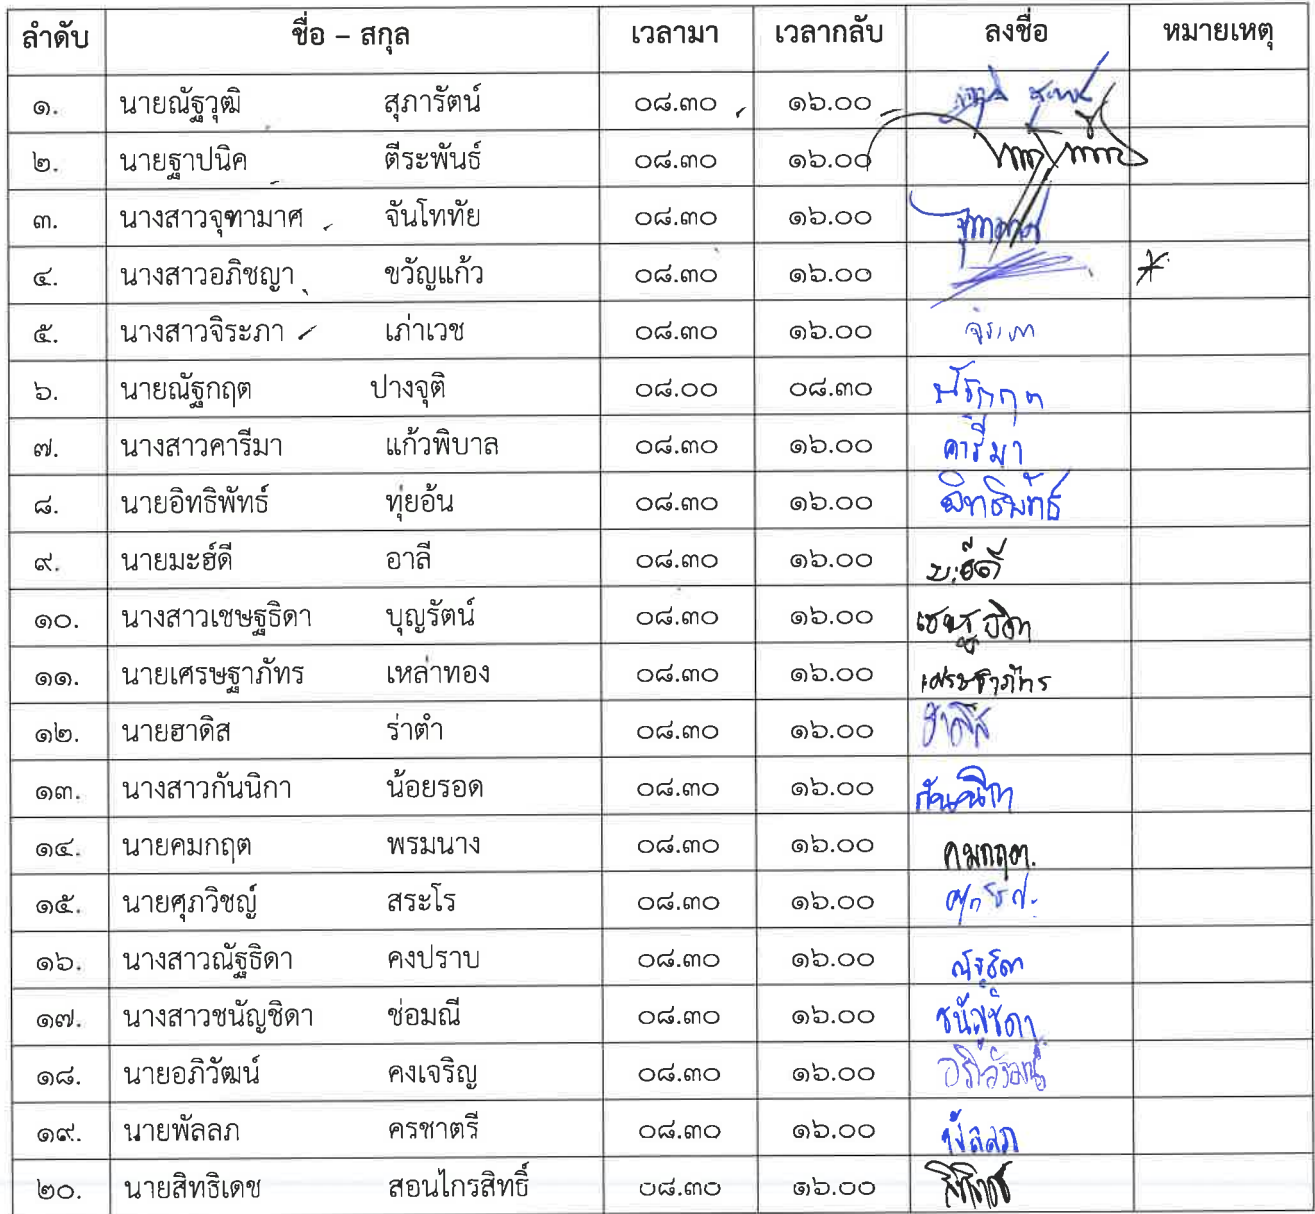 ลำดับ ชื่อ – สกุล เวลามา เวลากลับ ลงชื่อ หมายเหตุ
๑. นายณัฐวุฒิ สุภารัตน์ ๐๘.๓๐ ๑๖.๐๐
๒. นายฐาปนิค ตีระพันธ์ ๐๘.๓๐ ๑๖.๐๐
๓. นางสาวจุฑามาศ จันโททัย ๐๘.๓๐ ๑๖.๐๐ จุฑามาศ
๔. นางสาวอภิชญา ขวัญแก้ว ๐๘.๓๐ ๑๖.๐๐ *
๕. นางสาวจิระภา เภ่าเวช ๐๘.๓๐ ๑๖.๐๐ จิระภา
๖. นายณัฐกฤต ปางจุติ ๐๘.๐๐ ๐๘.๓๐ ณัฐกฤต
๗. นางสาวคารีมา แก้วพิบาล ๐๘.๓๐ ๑๖.๐๐ คารีมา
๘. นายอิทธิพัทธ์ ทุ่ยอ้น ๐๘.๓๐ ๑๖.๐๐ อิทธิพัทธ์
๙. นายมะฮ์ดี อาลี ๐๘.๓๐ ๑๖.๐๐ มะฮ์ดี
๑๐. นางสาวเชษฐธิดา บุญรัตน์ ๐๘.๓๐ ๑๖.๐๐ เชษฐธิดา
๑๑. นายเศรษฐาภัทร เหล่าทอง ๐๘.๓๐ ๑๖.๐๐ เศรษฐาภัทร
๑๒. นายฮาดิส ร่าตำ ๐๘.๓๐ ๑๖.๐๐ ฮาดิส
๑๓. นางสาวกันนิกา น้อยรอด ๐๘.๓๐ ๑๖.๐๐ กันนิกา
๑๔. นายคมกฤต พรมนาง ๐๘.๓๐ ๑๖.๐๐ คมกฤต.
๑๕. นายศุภวิชญ์ สระโร ๐๘.๓๐ ๑๖.๐๐
๑๖. นางสาวณัฐธิดา คงปราบ ๐๘.๓๐ ๑๖.๐๐ ณัฐธิดา
๑๗. นางสาวชนัญชิดา ช่อมณี ๐๘.๓๐ ๑๖.๐๐ ชนัญชิดา
๑๘. นายอภิวัฒน์ คงเจริญ ๐๘.๓๐ ๑๖.๐๐ อภิวัฒน์
๑๙. นายพัลลภ ครชาตรี ๐๘.๓๐ ๑๖.๐๐ พัลลภ
๒๐. นายสิทธิเดช สอนไกรสิทธิ์ ๐๘.๓๐ ๑๖.๐๐ สิทธิเดช